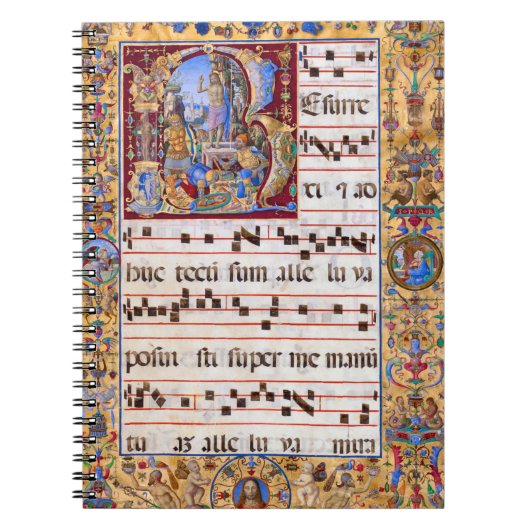 Resurre
xi, ⁊ ad
huc tecũ sum alle lu ya
posui sti super me manũ
tu aȝ alle lu ya mira